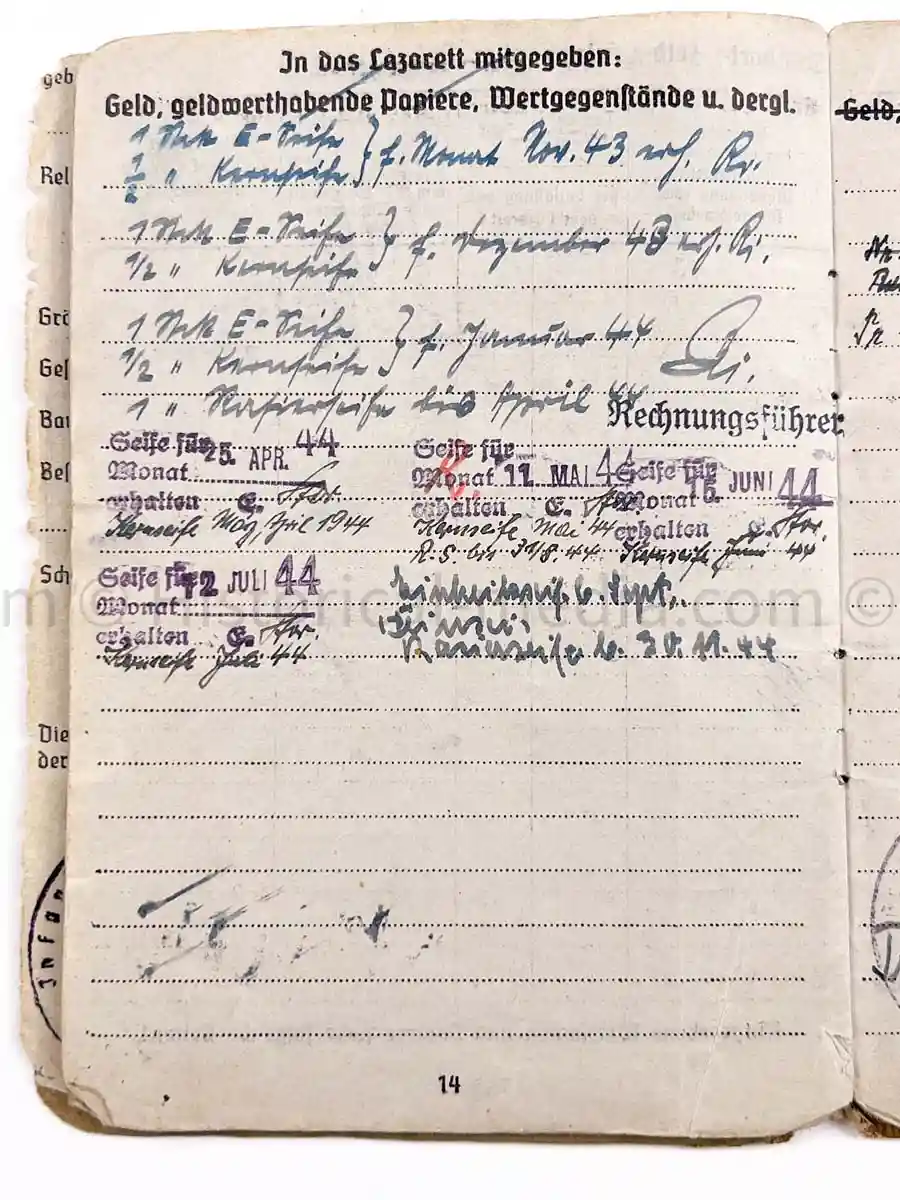 In das Lazarett mitgegeben:
Geld, geldwerthabende Papiere, Wertgegenstände u. dergl.
1 Stck E-Seife } f. Monat Nov. 43 erh. Ri.
1/2 " Kernseife
1 Stck E-Seife } f. Dezember 43 erh. Ri.
1/2 " Kernseife
1 Stck E-Seife } f. Januar 44 Ri.
1/2 " Kernseife
1 " Rasierseife bis April 44
Rechnungsführer
Seife für
Monat 25. APR. 44
erhalten E.
Kernseife März, April 1944
Seife für
Monat 11. MAI 44
erhalten E.
Kernseife Mai 44
R.S. bis 31/8.44
Seife für
Monat 15. JUNI 44
erhalten E.
Kernseife Juni 44
Seife für
Monat 12. JULI 44
erhalten E.
Kernseife Juli 44
Einheitsseife b. Sept.
Rasierseife b. 30.11.44
14
geb
Rel
Grö
Ges
Bar
Bes
Sch
Die
der
Infan
Geld,